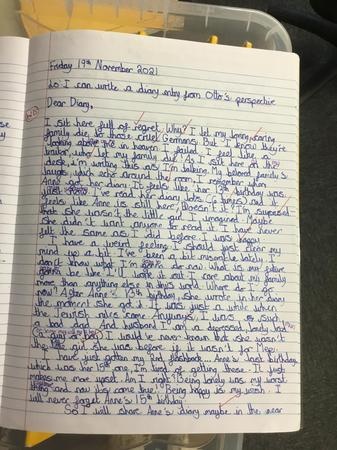 Friday 19th November 2021
Lo I can write a diary entry from Otto's perspective
Dear Diary,
I sit here full of regret. Why? I let my loving, caring
family die to those cruel Germans. But I know they're
looking above me in heaven. I failed. I feel like a
traitor who let my family die. As I sit here on this
desk, I'm writing this as I'm talking. My beloved family's
laughs which echo around the room, I remember when
Anne got her diary. It feels like her 13th birthday was
just I've read her diary lots (6 times) and it
feels like Anne is still here, doesn't it? I'm surprised
that she wasn't the little girl I imagined. Maybe
she didn't want anyone to read it. I have never
felt the same as I did before. I was happy
I have a weird feeling. I should just clear my
mind up a bit. I've been a bit miserable lately. I
don't know what I'm do now. What is my future
be like. I'll write it out. I care about my family
more than anything else in this world. Where do I go
now? After Anne's 13th birthday, she wrote in her diary
the moment she got it. It was just a while when
the Jewish rules came. Anyways, I was such
a bad dad. And husband. I am a depressed, lonely, sad
guy I would've never known that she wasn't
the girl she was before if it wasn't for Miep.
I have just gotten my 2nd flashback... Anne's last birthday
which was her 15th one. I'm tired of getting these. It just
makes me more upset. Am I right? Being lonely was my worst
thing and now its come true! Being happy is my wish. I
will never forget Anne's 15th birthday.
So I will share Anne's diary maybe in the near